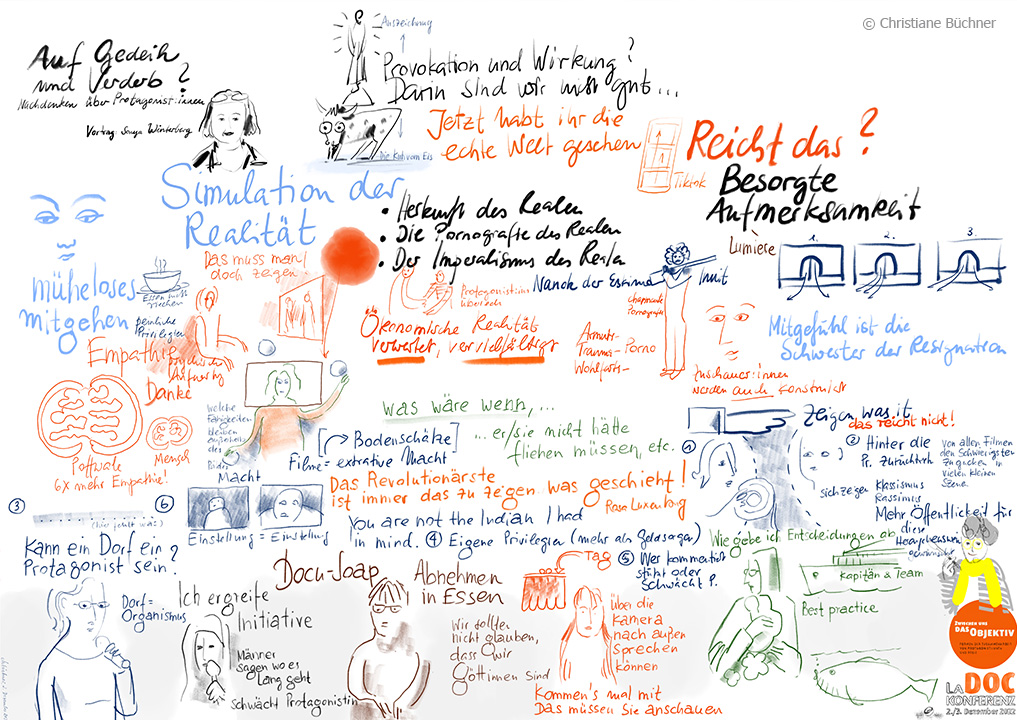 © Christiane Büchner
Auf Gedeih
und Verderb?
Nachdenken über Protagonist:innen
Vortrag Sonya Winterberg
Auszeichnung
Provokation und Wirkung?
Darin sind wir mist gut...
Die Kuh vom Eis
Jetzt habt ihr die
echte Welt gesehen
Tiktok
Reicht das?
Besorgte
Aufmerksamkeit
Simulation der
Realität
• Herkunft des Realen
• Die Pornografie des Realen
• Der Imperalismus des Realen
müheloses
Mitgehen
Das muss man
doch zeigen
persönliche
Privilegien
Empathie
Danke
Pottwale
6x mehr Empathie!
Mensch
Ökonomische Realität
verwertet, vervielfältigt
Nanook der Eskimo
Inuit
charmante
Pornografie
Armuts-
Trauma-
Wohlfarts-
Porno
Lumière
1.
2.
3.
Mitgefühl ist die
Schwester der Resignation
Zuschauer:innen
werden auch konstruiert
welche
Fähigkeiten
bleiben
außerhalb
des
Bildes
Macht
was wäre wenn,...
...er/sie nicht hätte
fliehen müssen, etc.
[→ Bodenschätze]
Filme = extrative Macht
Zeigen, was ist
das reicht nicht!
①
② Hinter die
Pr. zurücktreten
von allen Filmen
den Schwierigsten
Zugucken in
vielen kleinen
Szene.
sich zeigen
Klassismus
Rassismus
Mehr Öffentlichkeit für
diese
Das Revolutionärste
ist immer das zu zeigen was geschieht!
Rosa Luxemburg
Einstellung = Einstellung
You are not the Indian I had
in mind.
④ Eigene Privilegien (mehr als Geldsorgen)
③
⑥
Kann ein Dorf ein
Protagonist sein?
Dorf =
Organismus
Ich ergreife
Initiative
Männer
sagen wo es
lang geht
schwächt Protagonistin
Docu-Soap
Abnehmen
in Essen
Wir sollten
nicht glauben,
dass wir
Gött:innen sind
Tag
⑤ Wer kommentiert
stützt oder
schwächt P.
über die
Kamera
nach außen
sprechen
können
Kommen's mal mit
Das müssen Sie anschauen
Wie gebe ich Entscheidungen ab
Kapitän & Team
Best practice
ZWISCHEN UNS
DAS OBJEKTIV
LA DOC
KONFERENZ
2./3. Dezember 2022